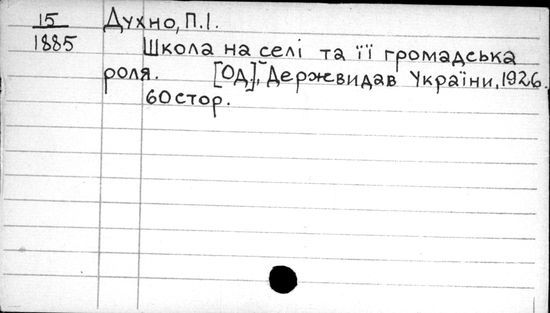 15
1885
Духно, П.І.
Школа на селі та її громадська
роля. [Од], Держвидав України, 1926.
60 стор.